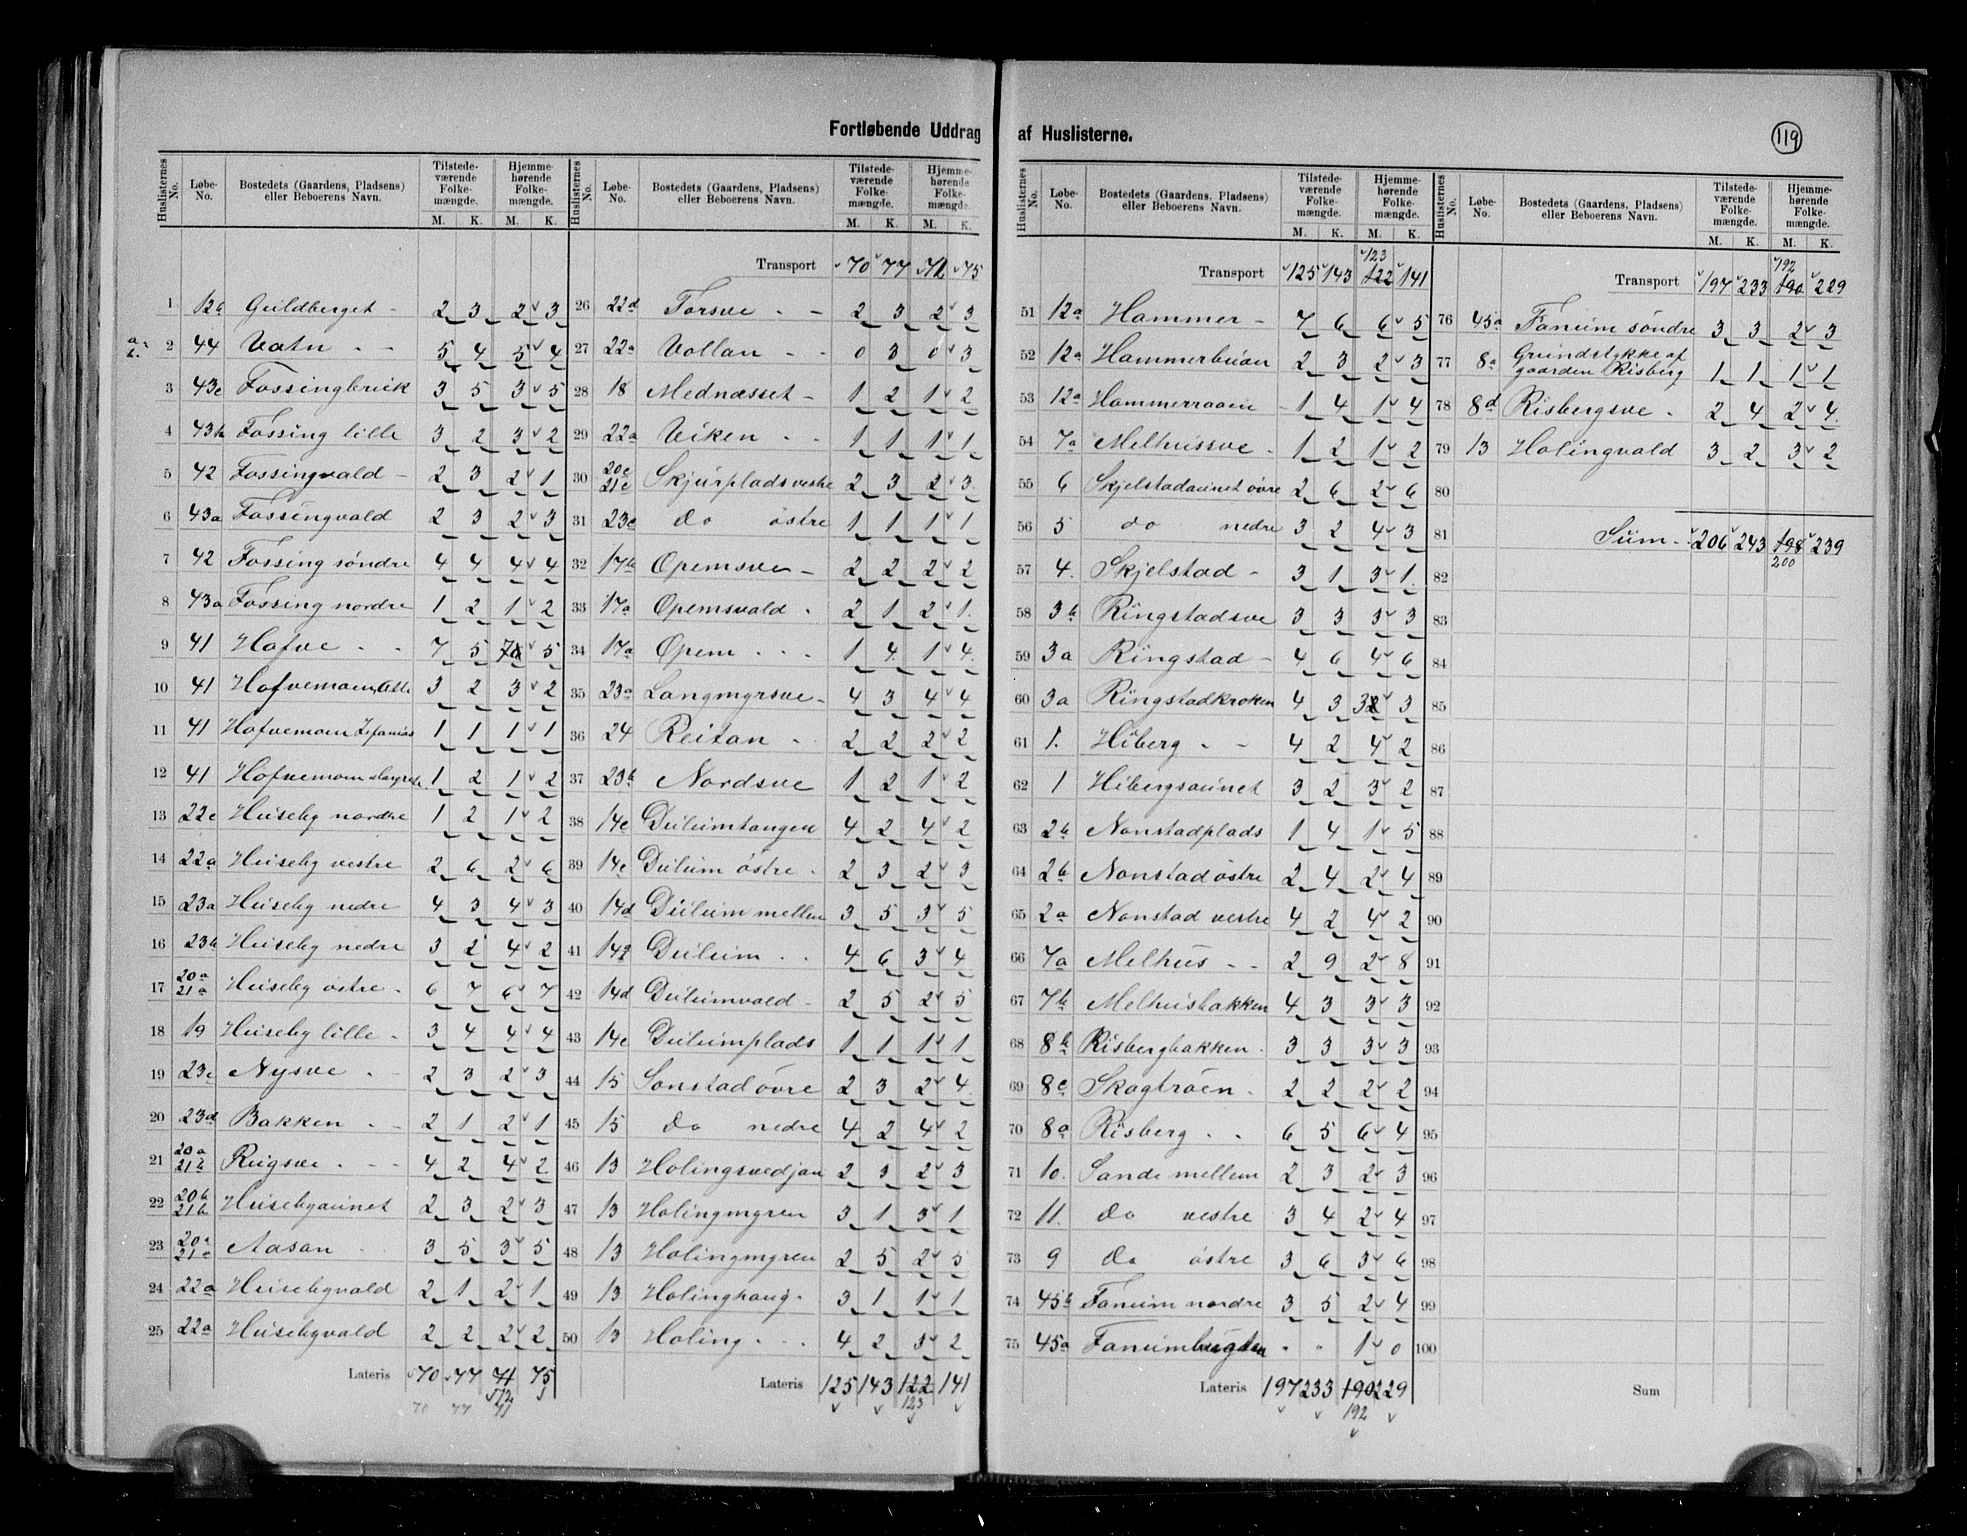 Fortløbende Uddrag af Huslisterne.
119
Huslisternes No. Løbe-No. Bostedets (Gaardens, Pladsens) eller Beboerens Navn. Tilstede-værende Folke-mængde. M. K. Hjemme-hørende Folke-mængde. M. K.
1 12b Guldberget - 2 3 2 3
2 44 Vatn - - 5 4 5 4
3 43c Fossingbruk 3 5 3 5
4 43b Fossing lille 3 2 3 2
5 42 Fossingvald - 2 3 2 1
6 43a Fossingvald 2 3 2 3
7 42 Fossing søndre 4 4 4 4
8 43a Fossing nordre 1 2 1 2
9 41 Hafve - - 7 5 7 5
10 41 Hofvemoen 3 2 3 2
11 41 Hofvemoen 1 1 1 1
12 41 Hofvemoen 1 2 1 2
13 22c Huseby nordre 1 2 1 2
14 22a Huseby vestre 2 6 2 6
15 23a Huseby nedre 4 3 4 3
16 23b Huseby nedre 3 2 4 2
17 20a 21a Huseby østre - 6 7 6 7
18 19 Huseby lille - 3 4 4 4
19 23c Nysve - 2 3 2 3
20 23d Bakken - - 2 1 2 1
21 20a 21b Rugsve - - 4 2 4 2
22 20b 21b Husebyaunet 2 3 2 3
23 20a 21a Aasan 3 5 3 5
24 22a Husebyvald 2 1 2 1
25 22a Husebyvald 2 2 2 2
Lateris 70 77 71 75
72
70 77 71
Huslisternes No. Løbe-No. Bostedets (Gaardens, Pladsens) eller Beboerens Navn. Tilstede-værende Folke-mængde. M. K. Hjemme-hørende Folke-mængde. M. K.
Transport 70 77 72 75
26 22d Forsve - - 2 3 2 3
27 22a Vollan - - 0 3 0 3
28 18 Mednæsset - 1 2 1 2
29 22a Viken - - 1 1 1 1
30 20c 21c Skjurplads vestre 2 3 2 3
31 23c do østre 1 1 1 1
32 17b Opemsve - 2 2 2 2
33 17a Opemsvald - 2 1 2 1
34 17a Opem - - - 1 4 1 4
35 23a Langmyrsve - 4 3 4 4
36 24 Reitan - 2 2 2 2
37 23b Nordsve 1 2 1 2
38 14c Dulumtangen 4 2 4 2
39 14c Dulum østre - 2 3 2 3
40 14d Dulum mellem 3 5 3 5
41 14a Dulum - - 4 6 3 4
42 14d Dulumvald - 2 5 2 5
43 14c Dulumplads 1 1 1 1
44 15 Sonstad øvre 2 3 2 4
45 15 do nedre 4 2 4 2
46 13 Holingsvedjan 2 3 2 3
47 13 Holingmyren 3 1 3 1
48 13 Holingmyren 2 5 2 5
49 13 Holinghaug - 3 1 1 1
50 13 Holing - - - 4 2 3 2
Lateris 125 143 122 141
123
Huslisternes No. Løbe-No. Bostedets (Gaardens, Pladsens) eller Beboerens Navn. Tilstede-værende Folke-mængde. M. K. Hjemme-hørende Folke-mængde. M. K.
123
Transport 125 143 122 141
51 12a Hammer - 7 6 6 5
52 12a Hammerbuan 2 3 2 3
53 12a Hammerraaen - 1 4 1 4
54 7a Melhussve - 1 2 1 2
55 6 Skjelstadaunet øvre 2 6 2 6
56 5 do nedre 3 2 4 3
57 4. Skjelstad - 3 1 3 1.
58 3b Ringstadsve 3 3 3 3
59 3a Ringstad - 4 6 4 6
60 3a Ringstadkroken 4 3 3 3
61 1. Hiberg - - 4 2 4 2
62 1 Hibergsaunet 3 2 3 2
63 2b Nonstadplads 1 4 1 5
64 2b Nonstad østre 2 4 2 4
65 2a Nonstad vestre 4 2 4 2
66 7a Melhus - - 2 9 2 8
67 7b Melhusbakken 4 3 3 3
68 8b Risbergbakken - 3 3 3 3
69 8c Skogtrøen - 2 2 2 2
70 8a Risberg - - 6 5 6 4
71 10. Sande mellem 2 3 2 3
72 11. do vestre 3 4 2 4
73 9 do østre 3 6 3 6
74 45b Fanum nordre 3 5 2 4
75 45a Fanumbugten - " 1 0
Lateris 197 233 190 229
192
Huslisternes No. Løbe-No. Bostedets (Gaardens, Pladsens) eller Beboerens Navn. Tilstede-værende Folke-mængde. M. K. Hjemme-hørende Folke-mængde. M. K.
192
Transport 197 233 190 229
76 45a Fanum søndre 3 3 2 3
77 8a Grundstykke af gaarden Risberg 1 1 1 1
78 8d Risbergsve - 2 4 2 4.
79 13 Holingvald 3 2 3 2
80
81 Sum - 206 243 198 239
200
82
83
84
85
86
87
88
89
90
91
92
93
94
95
96
97
98
99
100
Sum